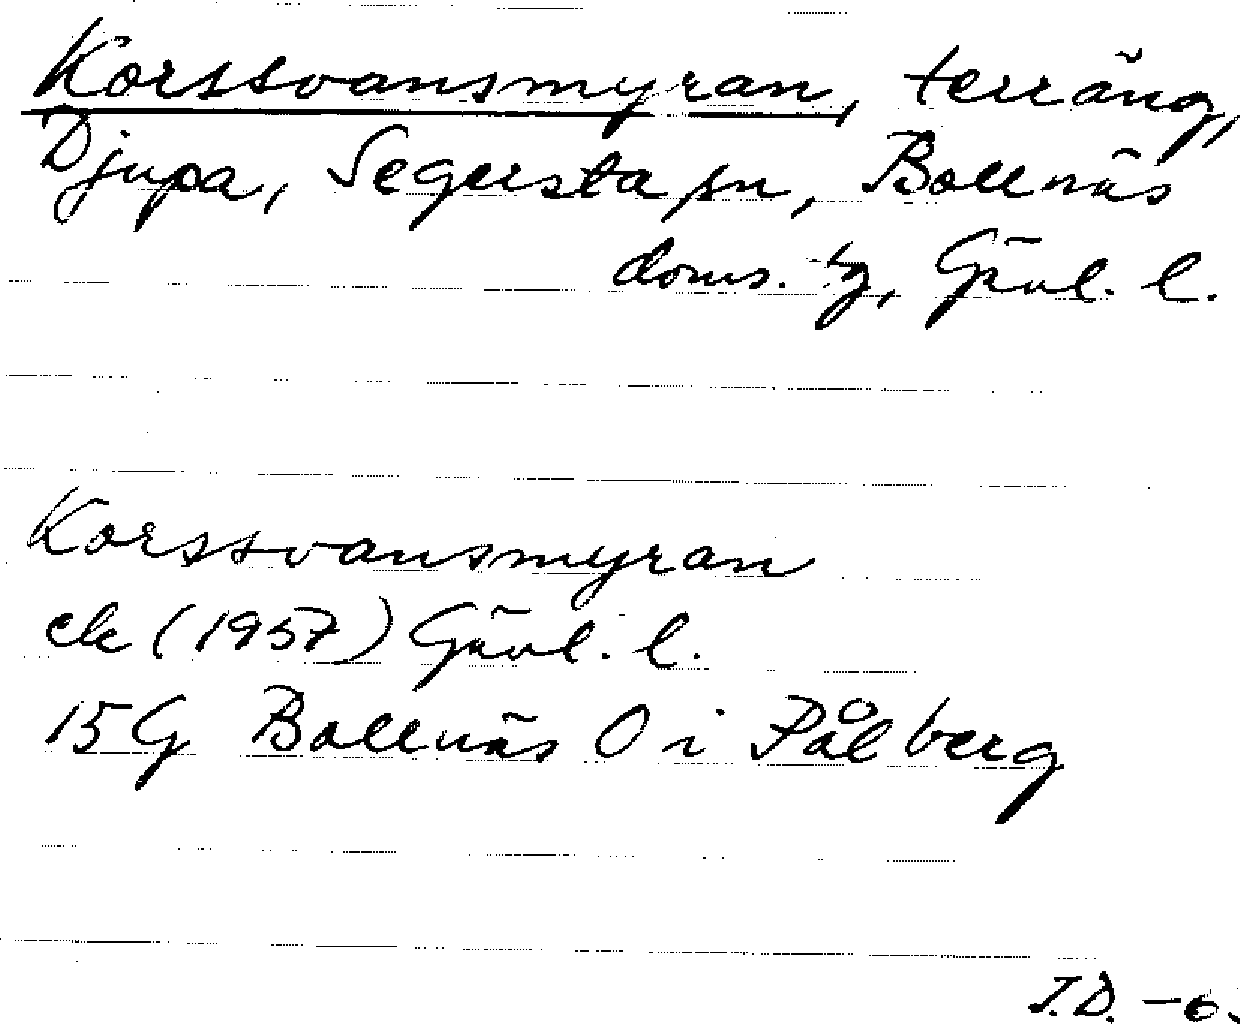 Korssvansmyran, terräng,
Djupa, Segersta sn, Bollnäs
doms. tg, Gävl. l.
Korssvansmyran
ek (1957) Gävl. l.
15G Bollnäs O i Pålberg
I.D. -6